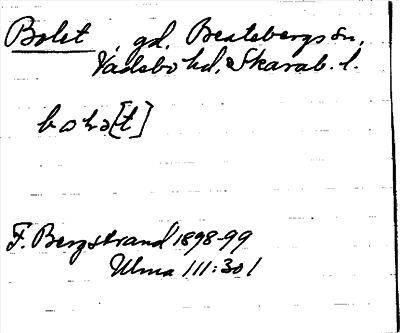 Bolet, gd, Beatebergs sn,
Vadsbo hd, Skarab. l.
F. Bergstrand 1898-99
Ulma 111:301